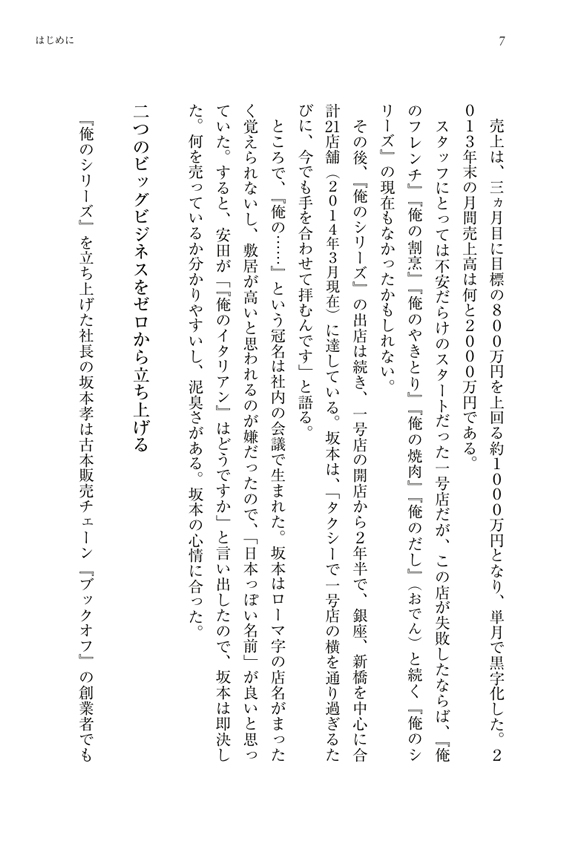 はじめに
7
売上は、三ヵ月目に目標の８００万円を上回る約１０００万円となり、単月で黒字化した。２
０１３年末の月間売上高は何と２０００万円である。
スタッフにとっては不安だらけのスタートだった一号店だが、この店が失敗したならば、『俺
のフレンチ』『俺の割烹』『俺のやきとり』『俺の焼肉』『俺のだし』（おでん）と続く『俺のシ
リーズ』の現在もなかったかもしれない。
その後、『俺のシリーズ』の出店は続き、一号店の開店から２年半で、銀座、新橋を中心に合
計21店舗（２０１４年３月現在）に達している。坂本は、「タクシーで一号店の横を通り過ぎるた
びに、今でも手を合わせて拝むんです」と語る。
ところで、『俺の……』という冠名は社内の会議で生まれた。坂本はローマ字の店名がまった
く覚えられないし、敷居が高いと思われるのが嫌だったので、「日本っぽい名前」が良いと思っ
ていた。すると、安田が「『俺のイタリアン』はどうですか」と言い出したので、坂本は即決し
た。何を売っているか分かりやすいし、泥臭さがある。坂本の心情に合った。
二つのビッグビジネスをゼロから立ち上げる
『俺のシリーズ』を立ち上げた社長の坂本孝は古本販売チェーン『ブックオフ』の創業者でも